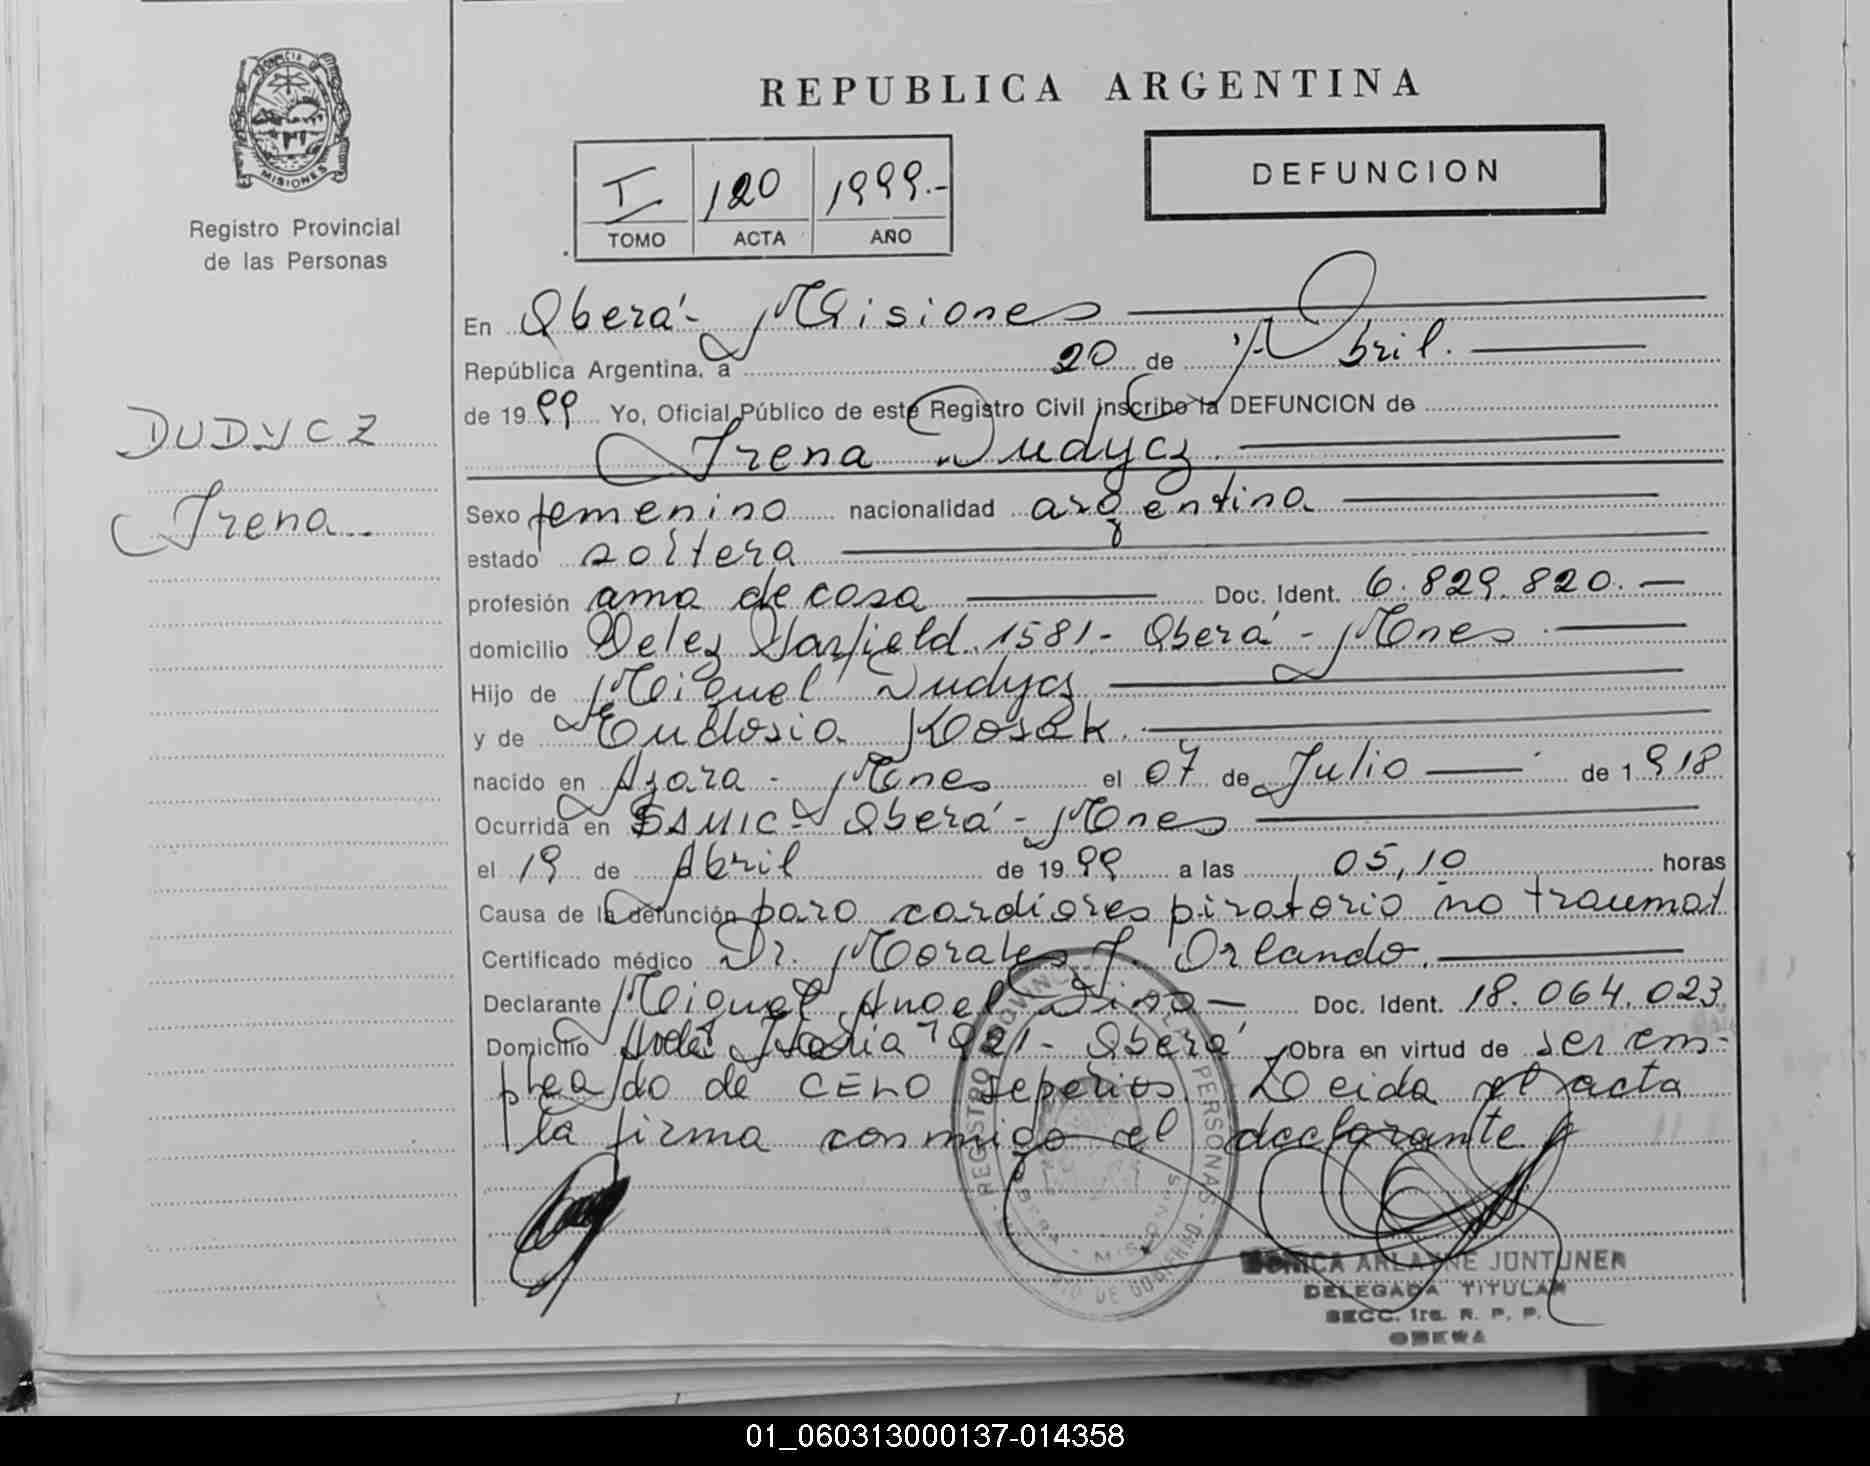 PROVINCIA DE
MISIONES
Registro Provincial
de las Personas
DUDYCZ
Irena
REPUBLICA ARGENTINA
I 120 1999.-
TOMO ACTA AÑO
DEFUNCION
En Oberá - Misiones
República Argentina, a 20 de Abril.
de 1999 Yo, Oficial Público de este Registro Civil inscribo la DEFUNCION de
Irena Dudycz.
Sexo femenino nacionalidad argentina
estado soltera
profesión ama de casa Doc. Ident. 6.829.820.-
domicilio Velez Sarfield 1581 - Oberá - Mnes
Hijo de Miguel Dudycz
y de Eudosia Kosak.
nacido en Azara - Mnes el 07 de Julio de 1918
Ocurrida en SAMIC - Oberá - Mnes
el 19 de Abril de 1999 a las 05,10 horas
Causa de la defunción paro cardiorespiratorio no traumat
Certificado médico Dr. Morales J. Orlando.
Declarante Miguel Angel Doc. Ident. 18.064.023
Domicilio Avda 921 - Oberá Obra en virtud de ser em-
pleado de CELO sepelios. Leida el acta
la firma conmigo el declarante
REGISTRO PROVINCIAL DE LAS PERSONAS
OBERA - MISIONES
ARLANNE JUNTUNEN
DELEGADA TITULAR
SECC. 1ra. R. P. P.
OBERA
01_060313000137-014358